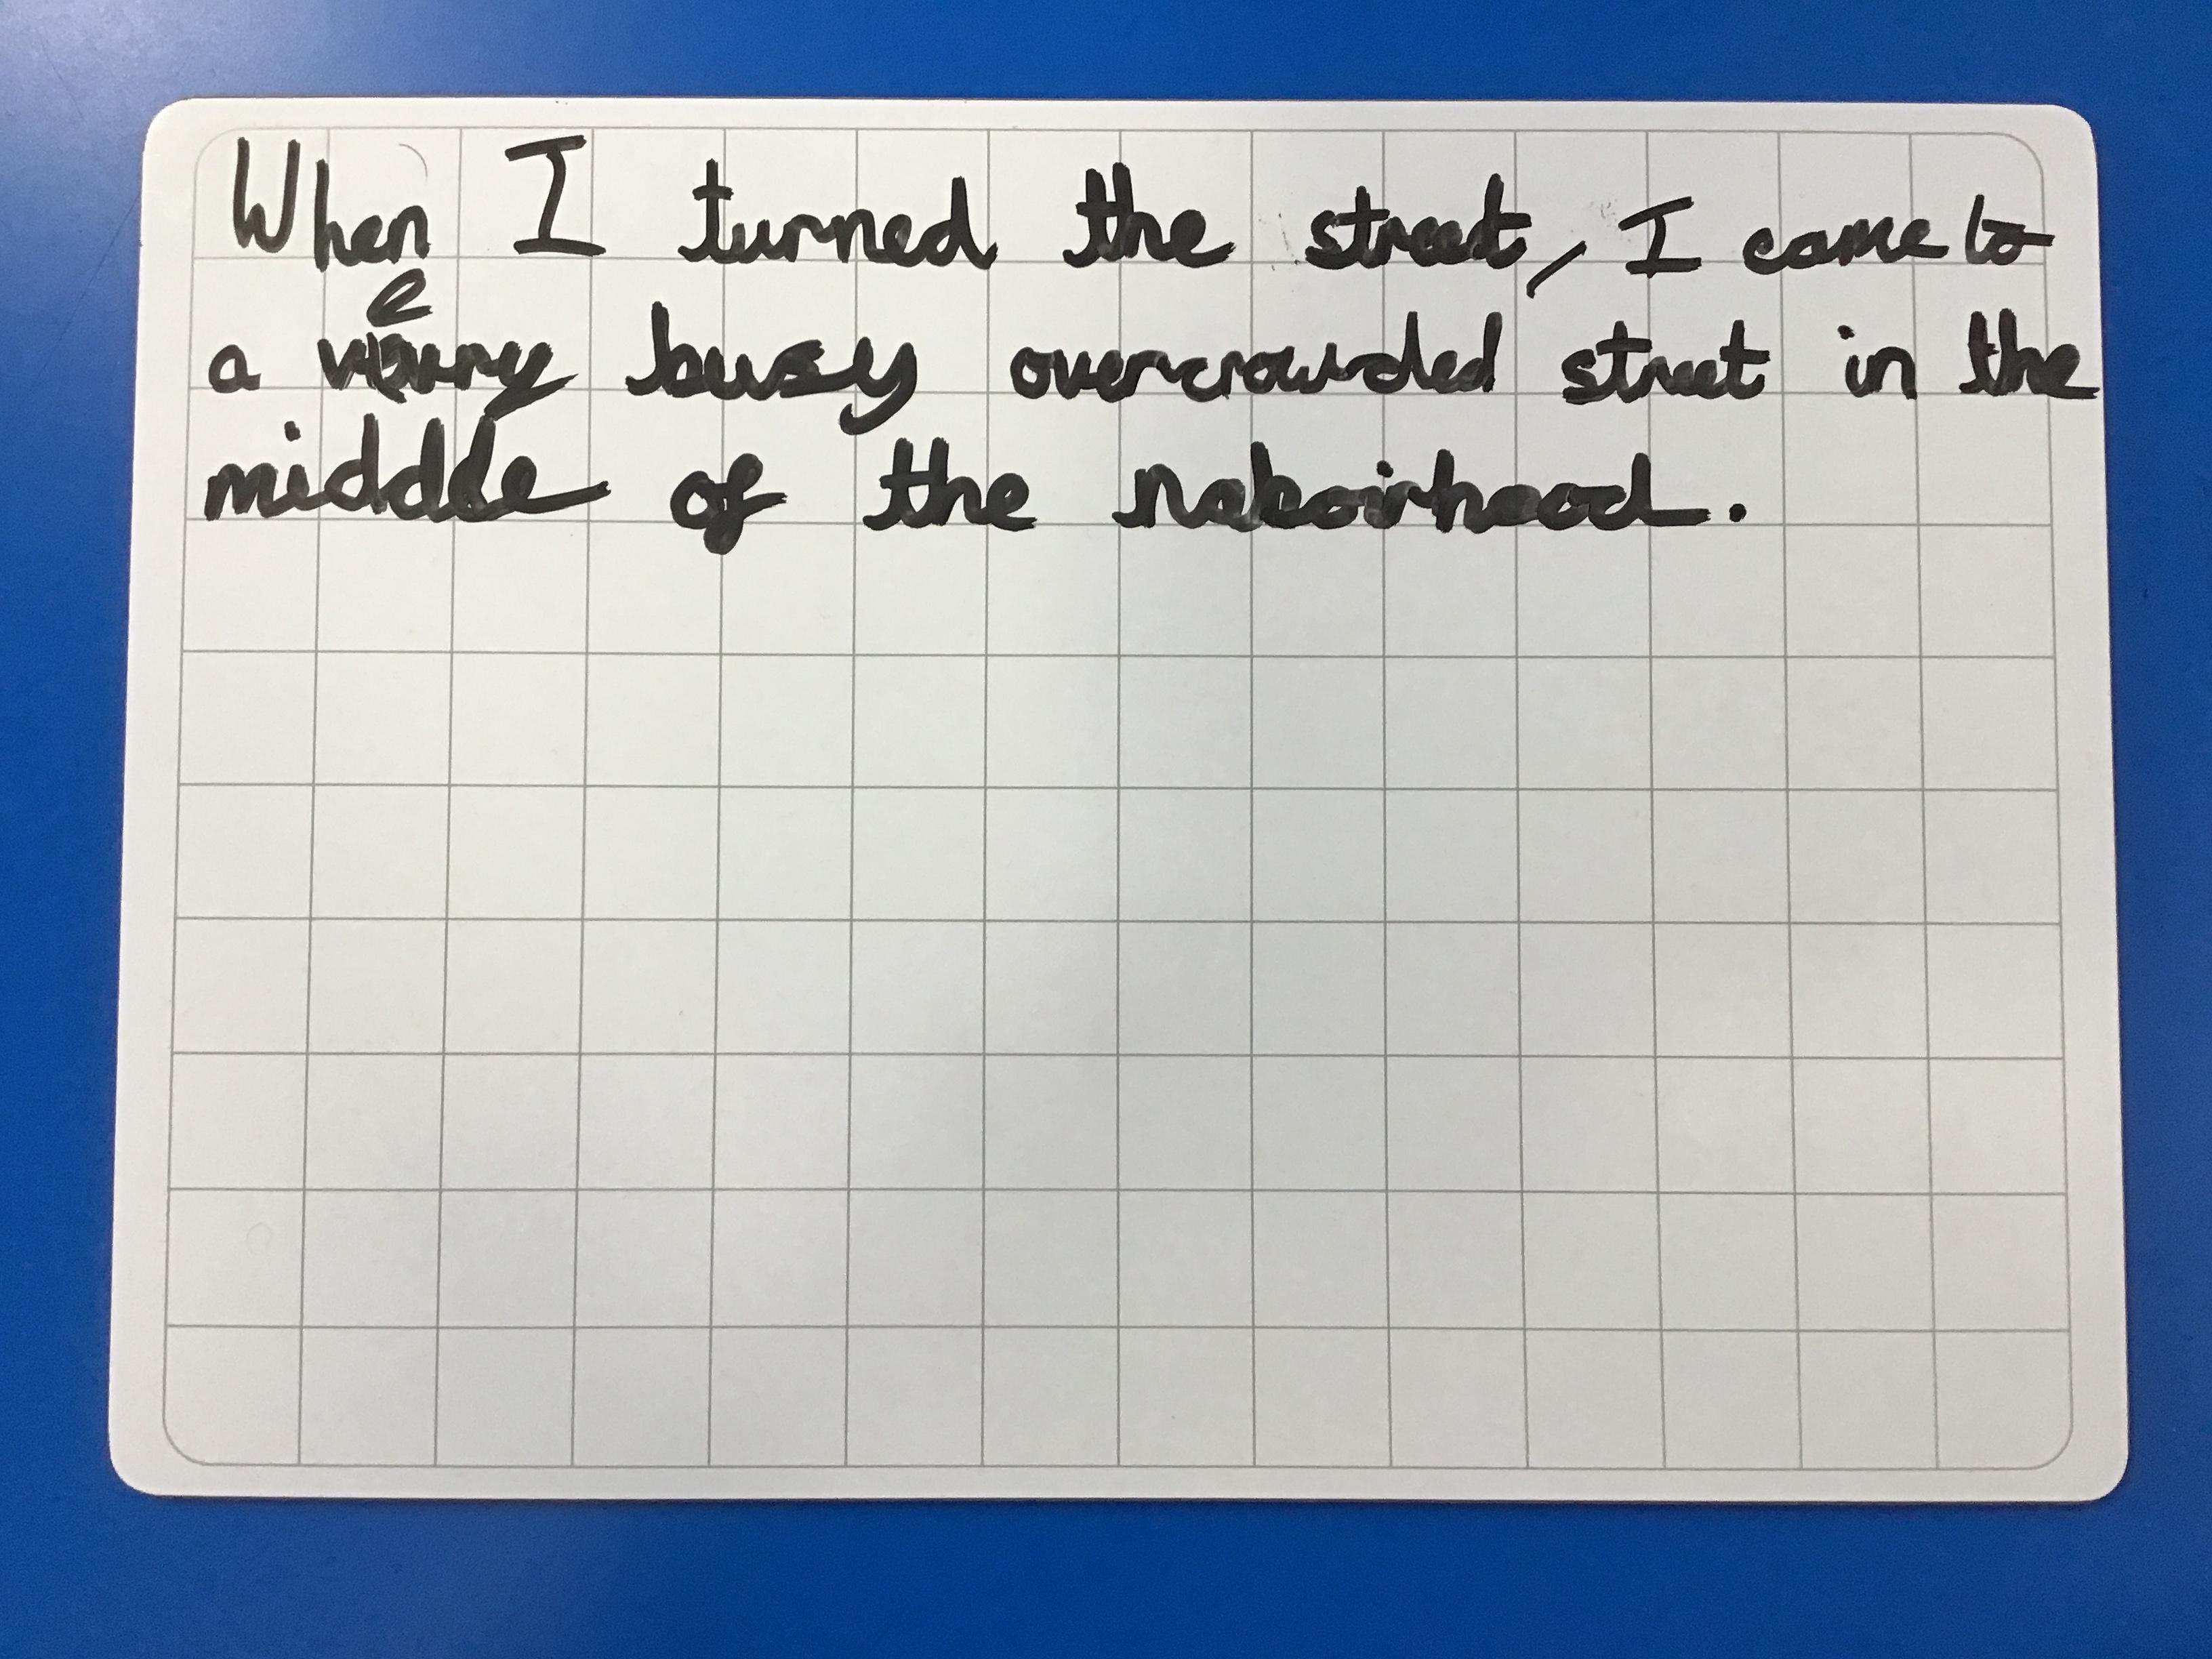 When I turned the street, I came to
a very busy overcrowded street in the
middle of the naboirhood.